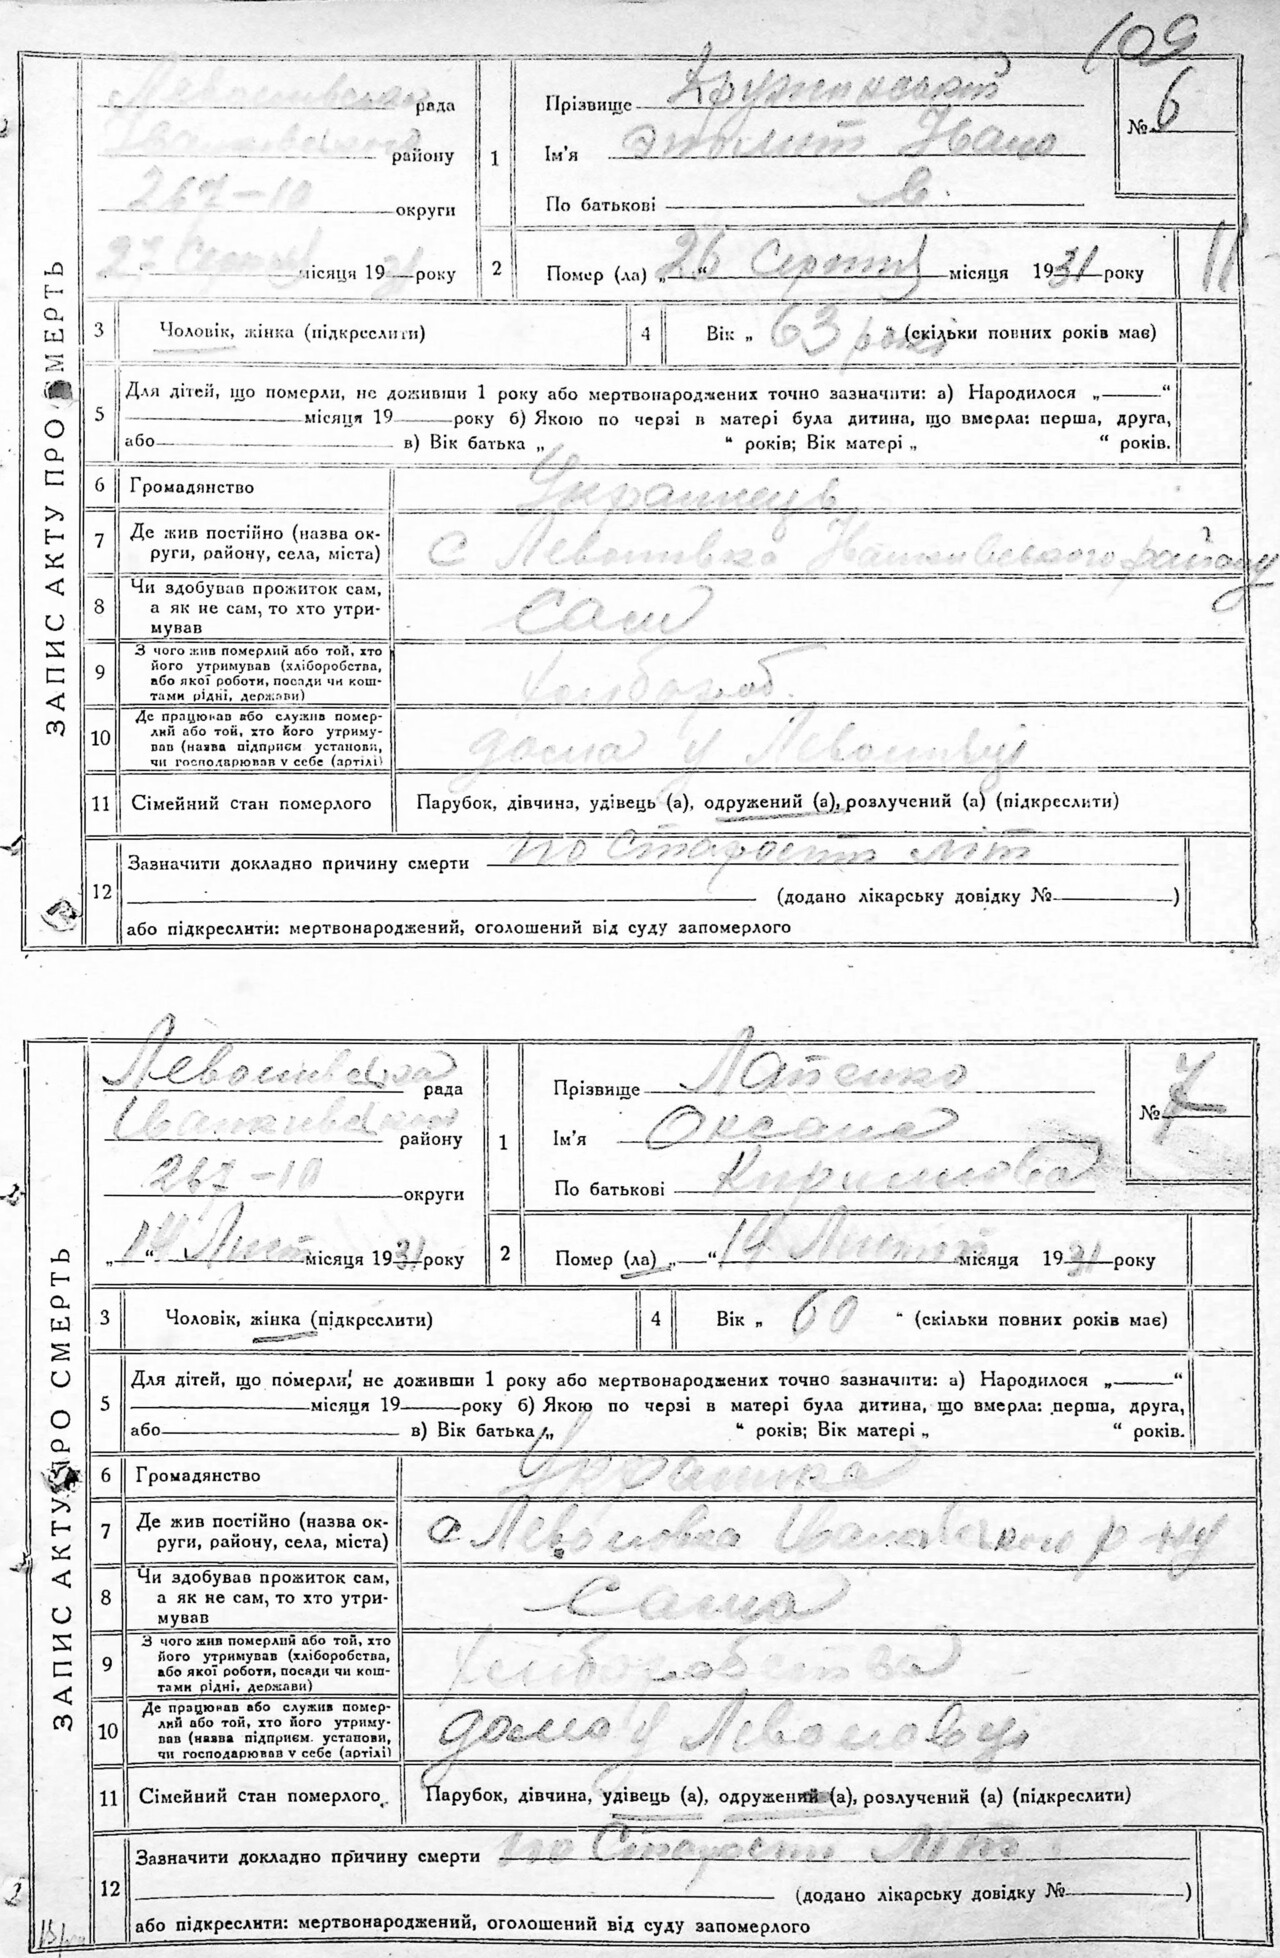 109
ЗАПИС АКТУ ПРО СМЕРТЬ
рада
району
267-10
округи
27 місяця 1931 року
1
Прізвище
Ім'я Івано
По батькові в
№ 6
2
Помер (ла) „26“ Серпня місяця 1931 року
11
3
Чоловік, жінка (підкреслити)
4
Вік „ 63 роки (скільки повних років має)
5
Для дітей, що померли, не доживши 1 року або мертвонароджених точно зазначити: а) Народилося „ “
місяця 19 року б) Якою по черзі в матері була дитина, що вмерла: перша, друга,
або в) Вік батька „ “ років; Вік матері „ “ років.
6
Громадянство Українець
7
Де жив постійно (назва ок-
руги, району, села, міста)
с району
8
Чи здобував прожиток сам,
а як не сам, то хто утри-
мував
сам
9
З чого жив померлий або той, хто
його утримував (хліборобства,
або якої роботи, посади чи кош-
тами рідні, держави)
хлібороб.
10
Де працював або служив помер-
лий або той, хто його утриму-
вав (назва підприєм установи,
чи господарював у себе (артілі)
дома у
11
Сімейний стан померлого
Парубок, дівчина, удівець (а), одружений (а), розлучений (а) (підкреслити)
12
Зазначити докладно причину смерти по старости літ
(додано лікарську довідку № )
або підкреслити: мертвонароджений, оголошений від суду запомерлого
ЗАПИС АКТУ ПРО СМЕРТЬ
рада
району
267-10
округи
„14“ Лист місяця 1931 року
1
Прізвище Лапенко
Ім'я Оксана
По батькові Кирилова
№ 7
2
Помер (ла) „ “ 14 місяця 1931 року
3
Чоловік, жінка (підкреслити)
4
Вік „ 60 “ (скільки повних років має)
5
Для дітей, що померли, не доживши 1 року або мертвонароджених точно зазначити: а) Народилося „ “
місяця 19 року б) Якою по черзі в матері була дитина, що вмерла: перша, друга,
або в) Вік батька „ “ років; Вік матері „ “ років.
6
Громадянство Українка
7
Де жив постійно (назва ок-
руги, району, села, міста)
с р-ну
8
Чи здобував прожиток сам,
а як не сам, то хто утри-
мував
сама
9
З чого жив померлий або той, хто
його утримував (хліборобства,
або якої роботи, посади чи кош-
тами рідні, держави)
хліборобства
10
Де працював або служив помер-
лий або той, хто його утриму-
вав (назва підприєм. установи,
чи господарював у себе (артілі)
дома у
11
Сімейний стан померлого
Парубок, дівчина, удівець (а), одружений (а), розлучений (а) (підкреслити)
12
Зазначити докладно причину смерти по Старости літ
(додано лікарську довідку № )
або підкреслити: мертвонароджений, оголошений від суду запомерлого